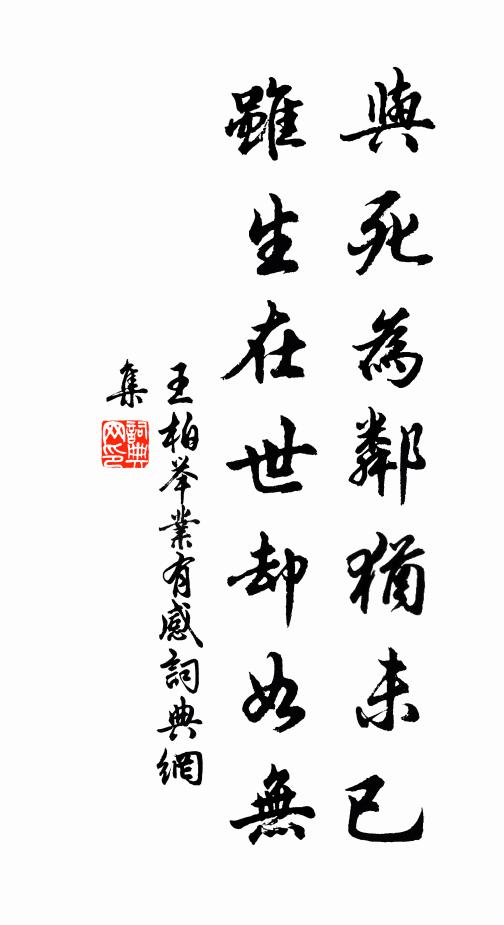 與死為鄰猶未已
雖生在世却如無
王柏举業有感詞典網
集
詞典
网印